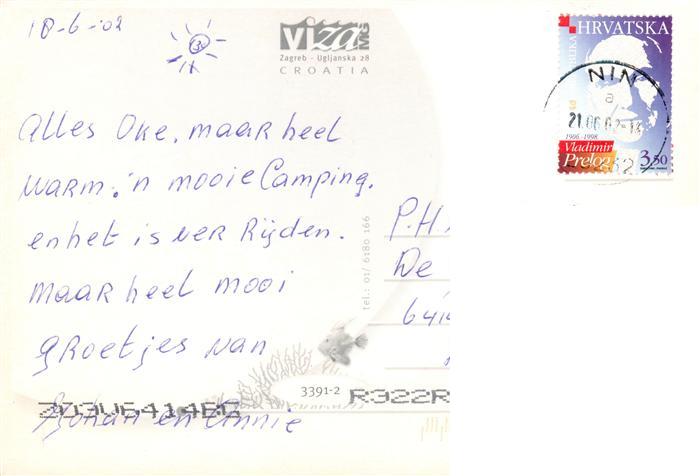 18-6-02
viza MKS
Zagreb - Ugljanska 28
CROATIA
REPUBLIKA HRVATSKA
NIN
a
21.06.02-14
1906.-1998.
Vladimir
Prelog
3,50
Alles Oke, maar heel
warm. 'n mooie Camping.
en het is ver Rijden.
maar heel mooi
groetjes van
Johan en Annie
tel.: 01/ 6180 166
P.H.
De
6414
3391-2
R322R